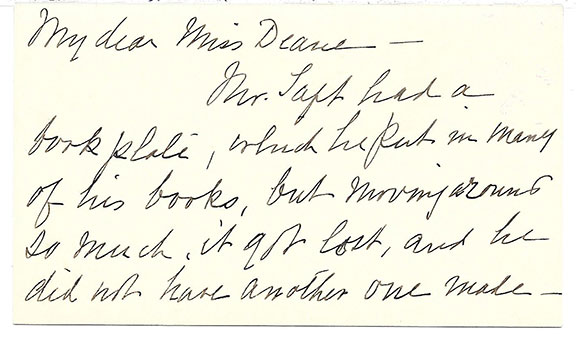 My dear Miss Deane —
Mr. Taft had a
book plate, which he put in many
of his books, but moving around
so much, it got lost, and he
did not have another one made —